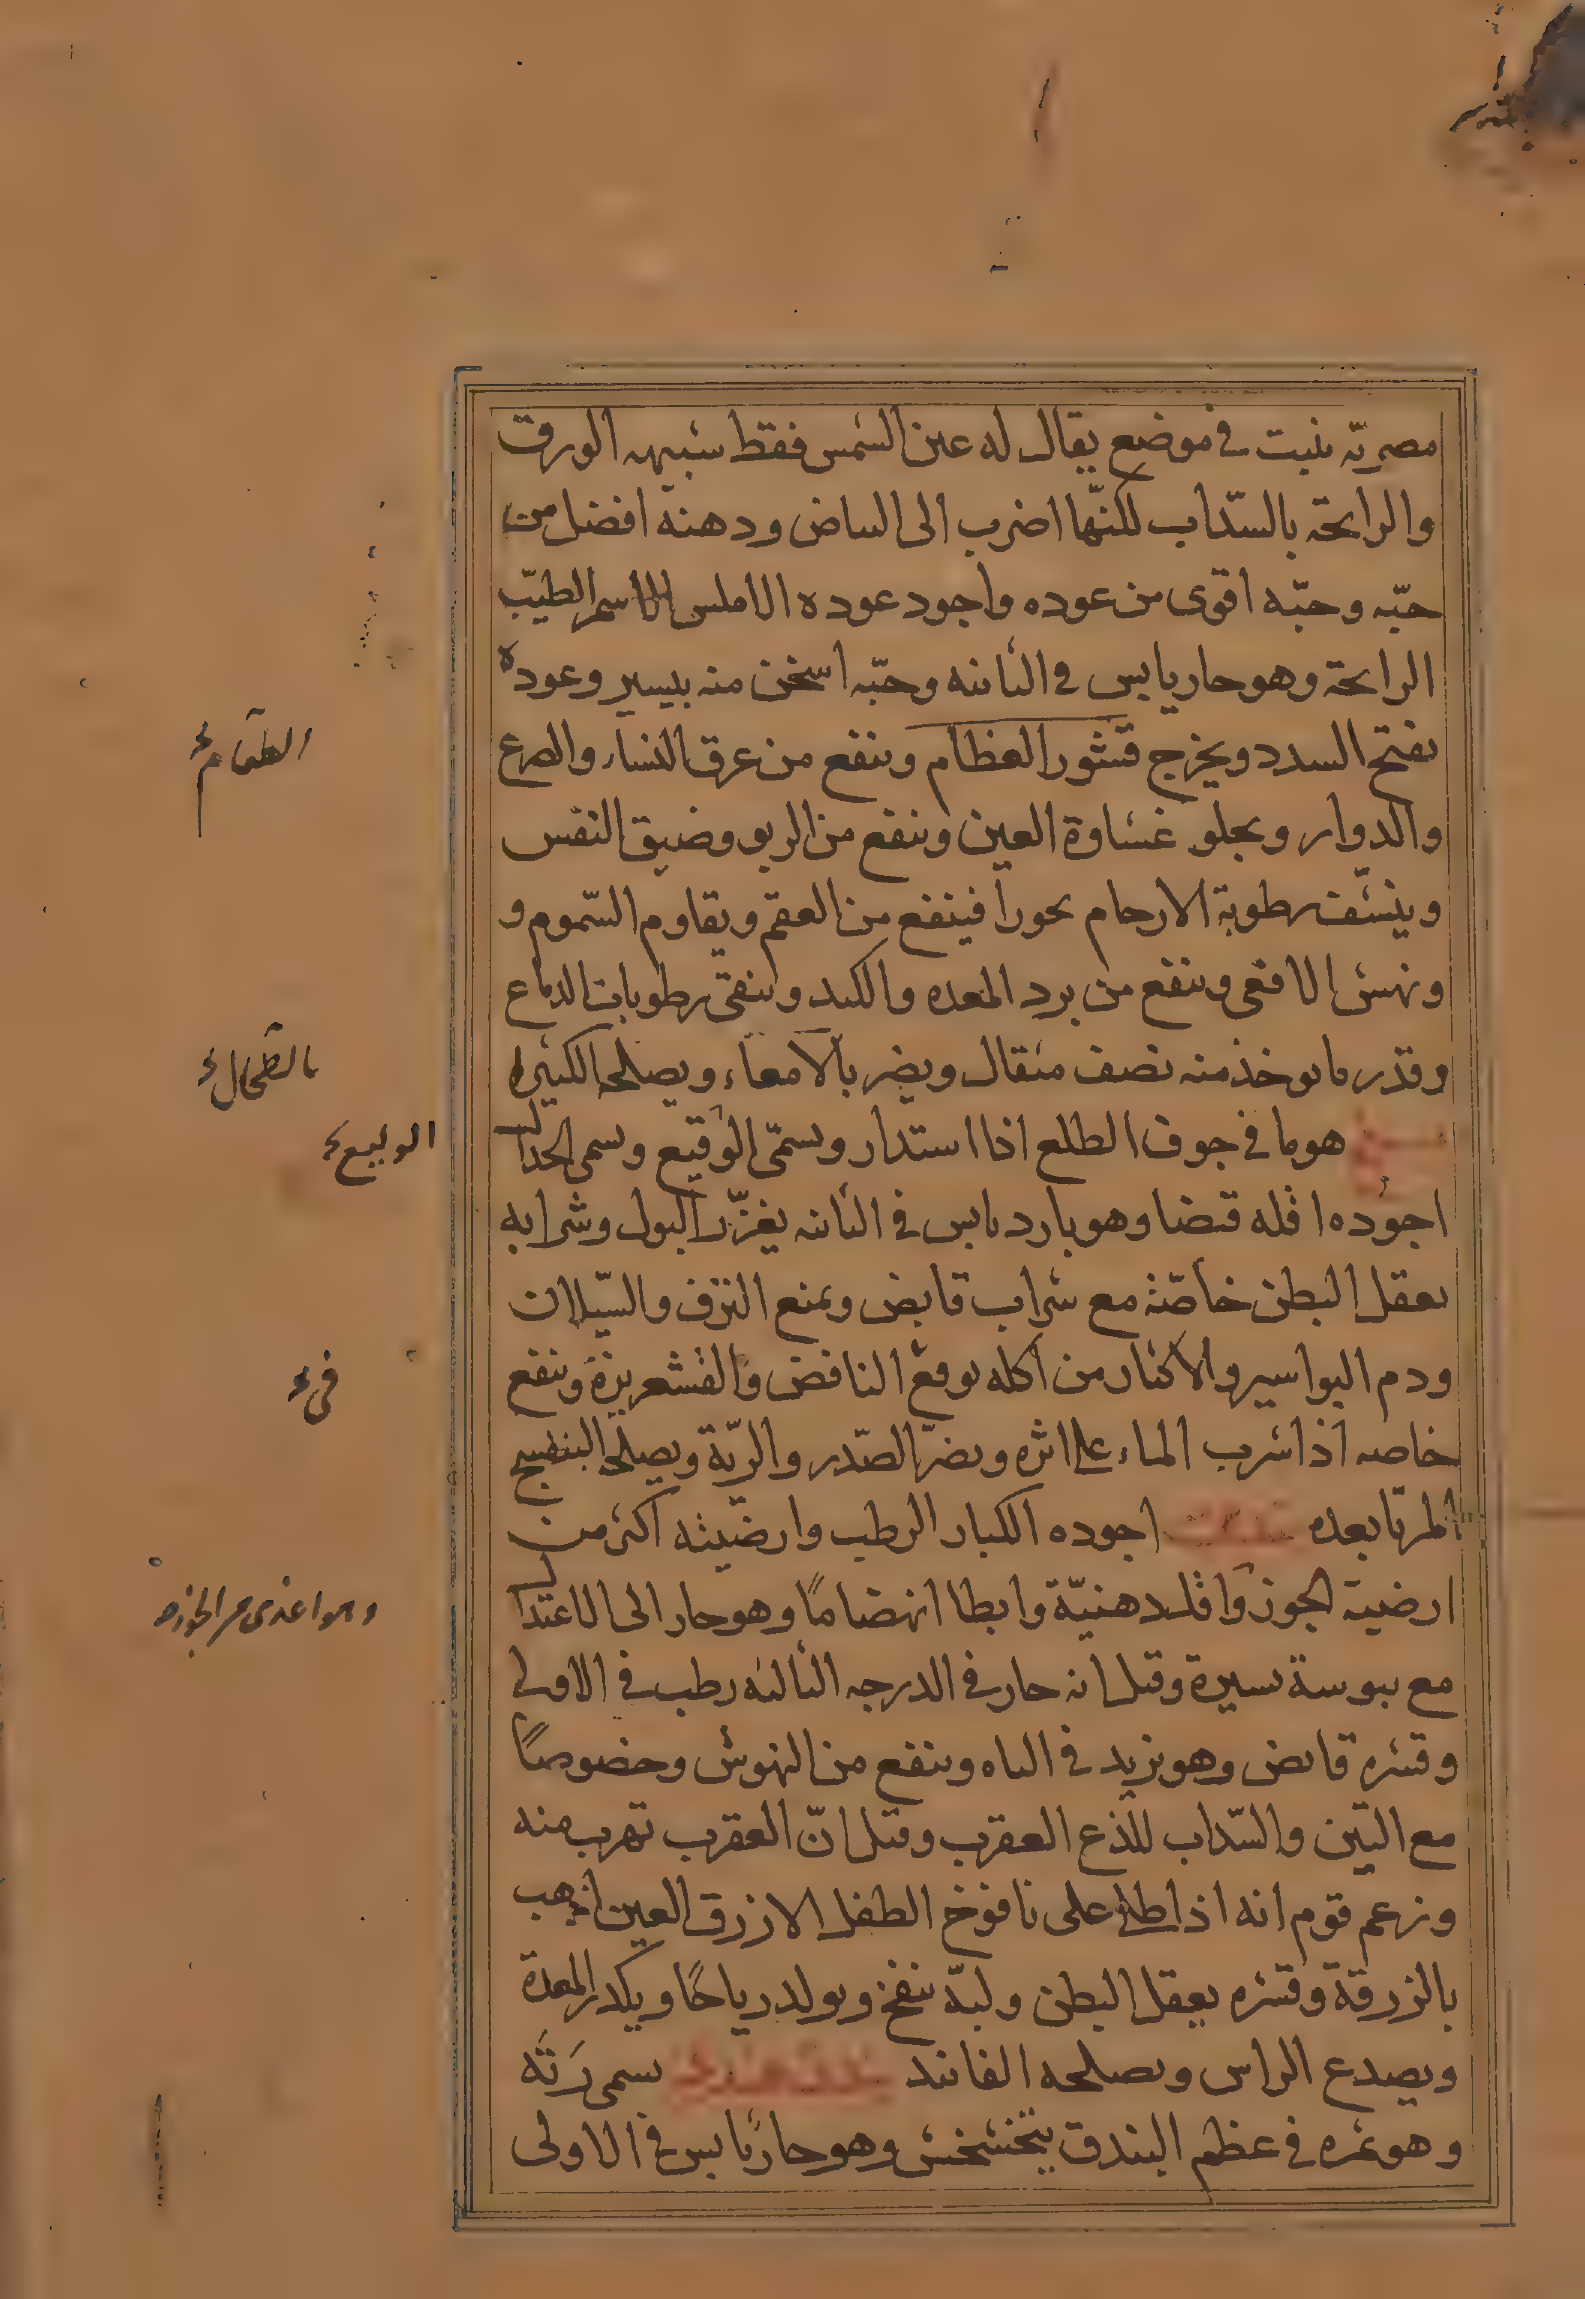 مصرية ينبت في موضع يقال له عين الشمس فقط شبيهه الورق
والرايحة بالسّذاب لكنّها اضرب الى البياض ودهنه افضل من
حبّه وحبّه اقوى من عوده واجود عوده الاملس الاسمر الطيّب
الرايحة وهو حار يابس في الثانية وحبّه اسخن منه بيسير وعوده
يفتح السدد ويخرج قشور العظام وينفع من عرق النساء والصرع
والدوار ويجلو غشاوة العين وينفع من الربو وضيق النفس
وينشّف رطوبة الارحام بخوراً فينفع من العقم ويقاوم السّموم و
ونهش الافعى وينفع من برد المعده والكبد وينقى رطوبات الدماغ
وقدر ما يوخذ منه نصف مثقال ويضر بالامعاء ويصلحه الكثيرا
هو ما في جوف الطلع اذا استدار ويسمّى الوقيع ويسمى الجدال
اجوده اقله قبضا وهو بارد يابس في الثانية يغزّر البول وشرابه
يعقل البطن خاصّة مع شراب قابض ويمنع النزف والسّيلان
ودم البواسير والاكثار من اكله يوقع النافض والقشعريرة وينفع
خاصه اذا شرب الماء على اثره ويضرّ الصّدر والريّة ويصلحه البنفسج
المربّا بعده اجوده الكبار الرطب وارضيّته اكثر من
ارضية الجوز واقل دهنيّة وابطا انهضاماً وهو حار الى الاعتدال
مع يبوسة يسيرة وقيل انه حار في الدرجه الثالثه رطب في الاولى
وقشره قابض وهو يزيد في الباه وينفع من النهوش وخصوصاً
مع التين والسّذاب للذع العقرب وقيل انّ العقرب تهرب منه
وزعم قوم انه اذا طلى على نافوخ الطفل الازرق العين اذهب
بالزرقة وقشره يعقل البطن ولبّه ينفخ ويولد رياحاً ويكدر المعدة
ويصدع الراس ويصلحه الفانيد بندق هندى يسمى رَتَه
وهو ثمره في عظم البندق يتخشخش وهو حار يابس في الاولى
الطعام
بالطحال
الوليع
في
وهو اغذى من الجوز